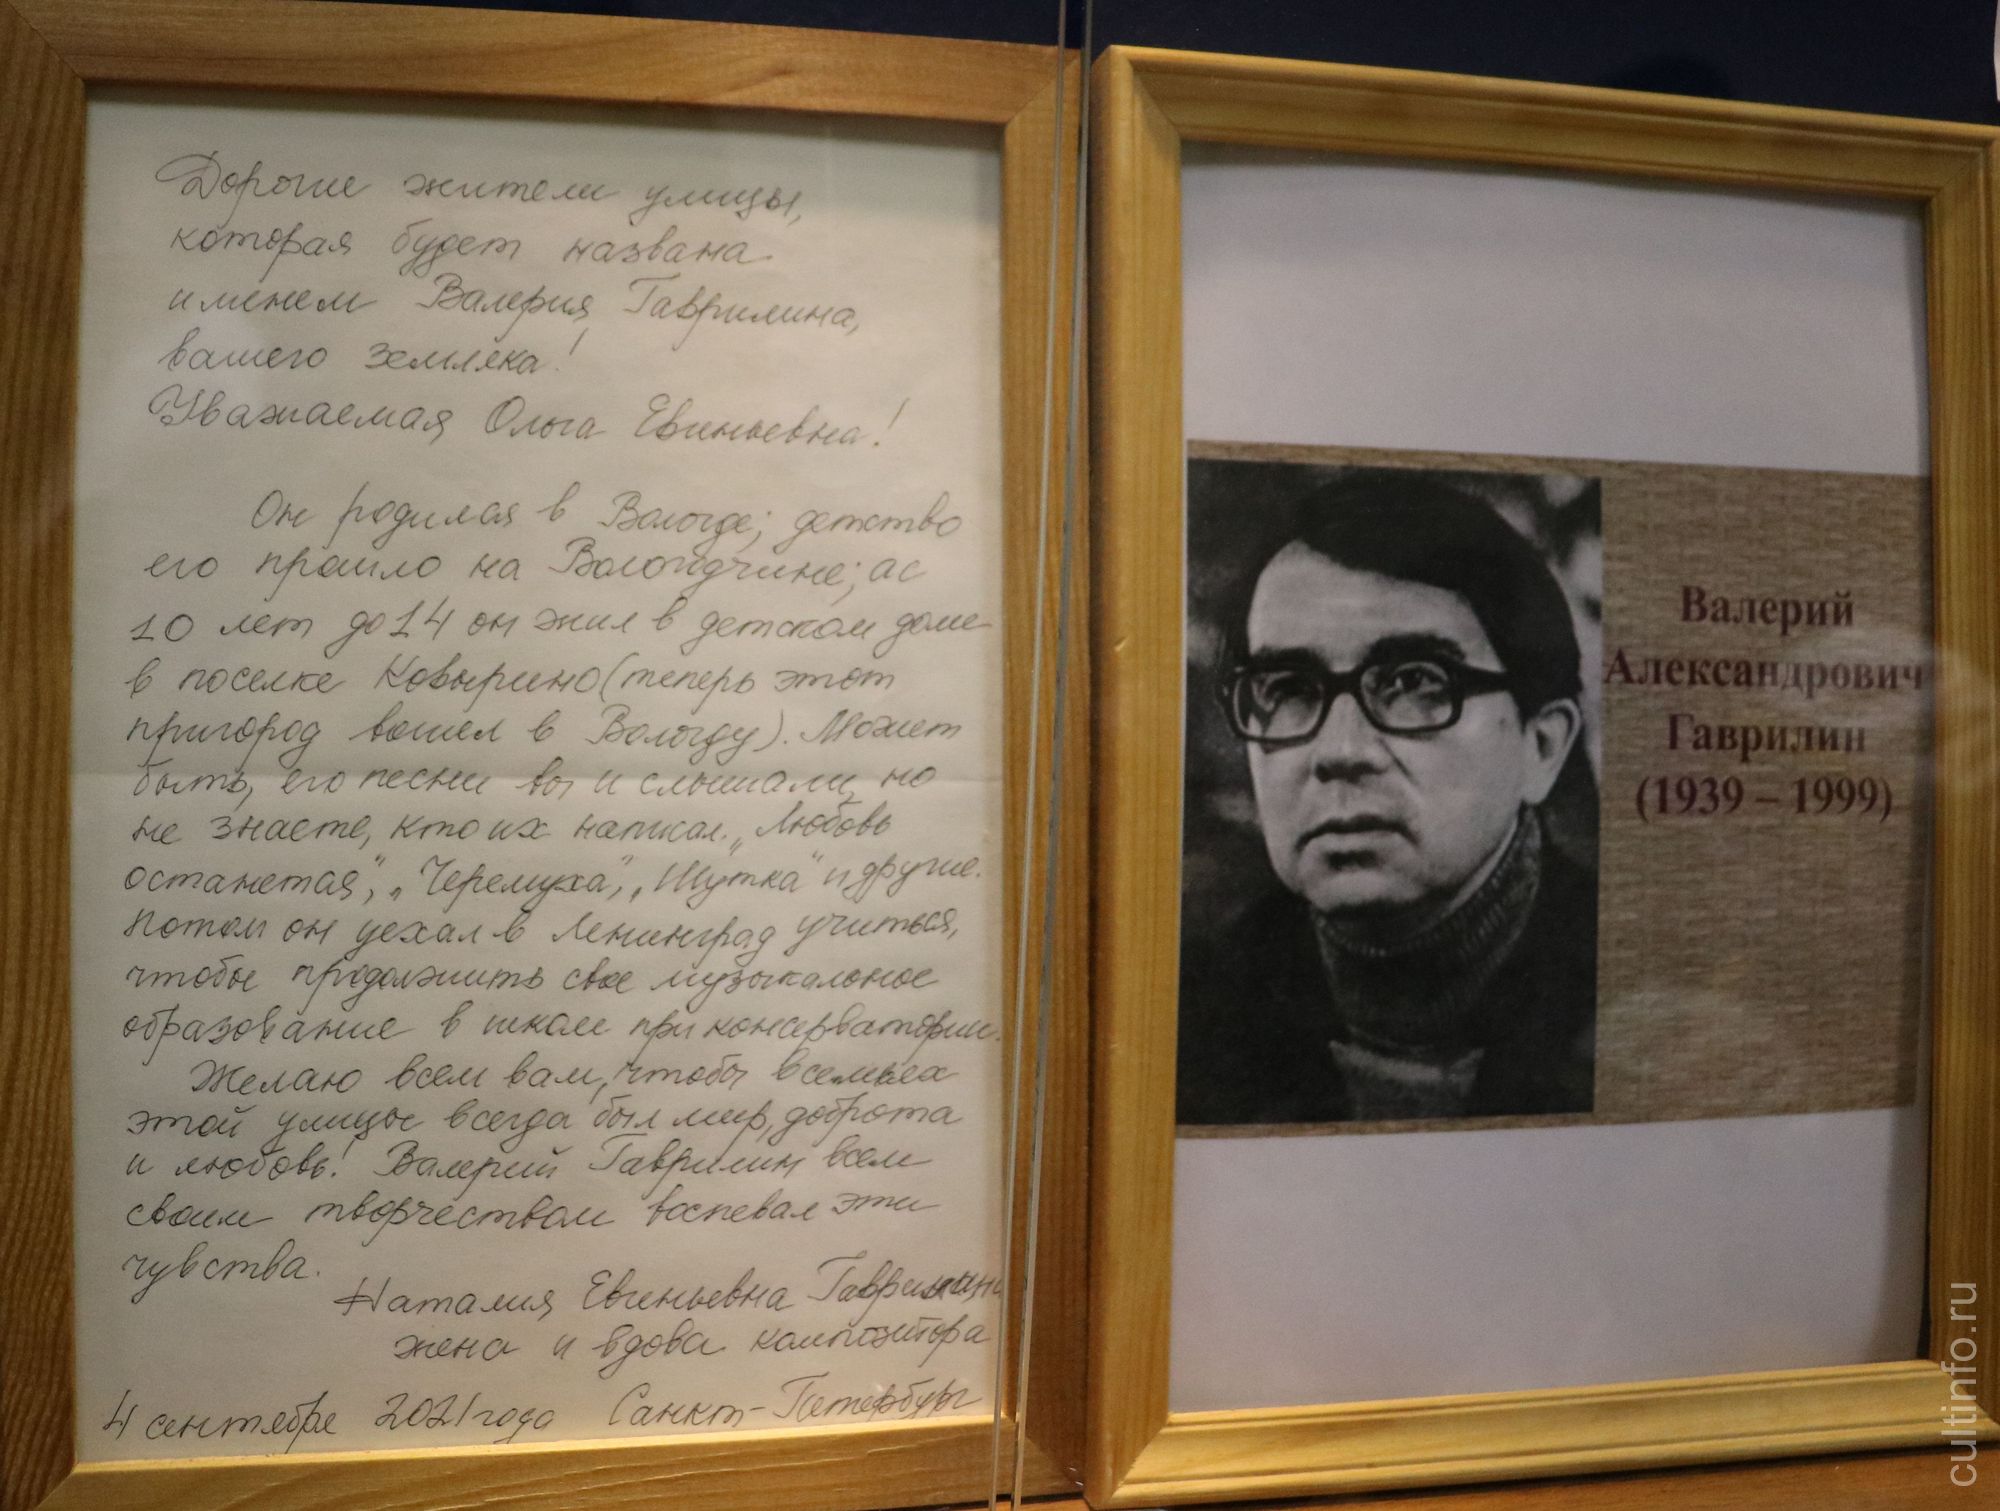 Дорогие жители улицы,
которая будет названа
именем Валерия Гаврилина,
вашего земляка!
Уважаемая Ольга Евгеньевна!
Он родился в Вологде; детство
его прошло на Вологодчине; а с
10 лет до 14 он жил в детском доме
в поселке Ковырино (теперь этот
пригород вошел в Вологду). Может
быть, его песни вы и слышали, но
не знаете, кто их написал. „Любовь
останется", „Черемуха", „Шутка" и другие.
Потом он уехал в Ленинград учиться,
чтобы продолжить свое музыкальное
образование в школе при консерватории.
Желаю всем вам, чтобы в семьях
этой улицы всегда был мир, доброта
и любовь! Валерий Гаврилин всем
своим творчеством воспевал эти
чувства.
Наталия Евгеньевна Гаврилин
жена и вдова композитора
4 сентября 2021 года Санкт-Петербург
Валерий
Александрович
Гаврилин
(1939 – 1999)
cultinfo.ru